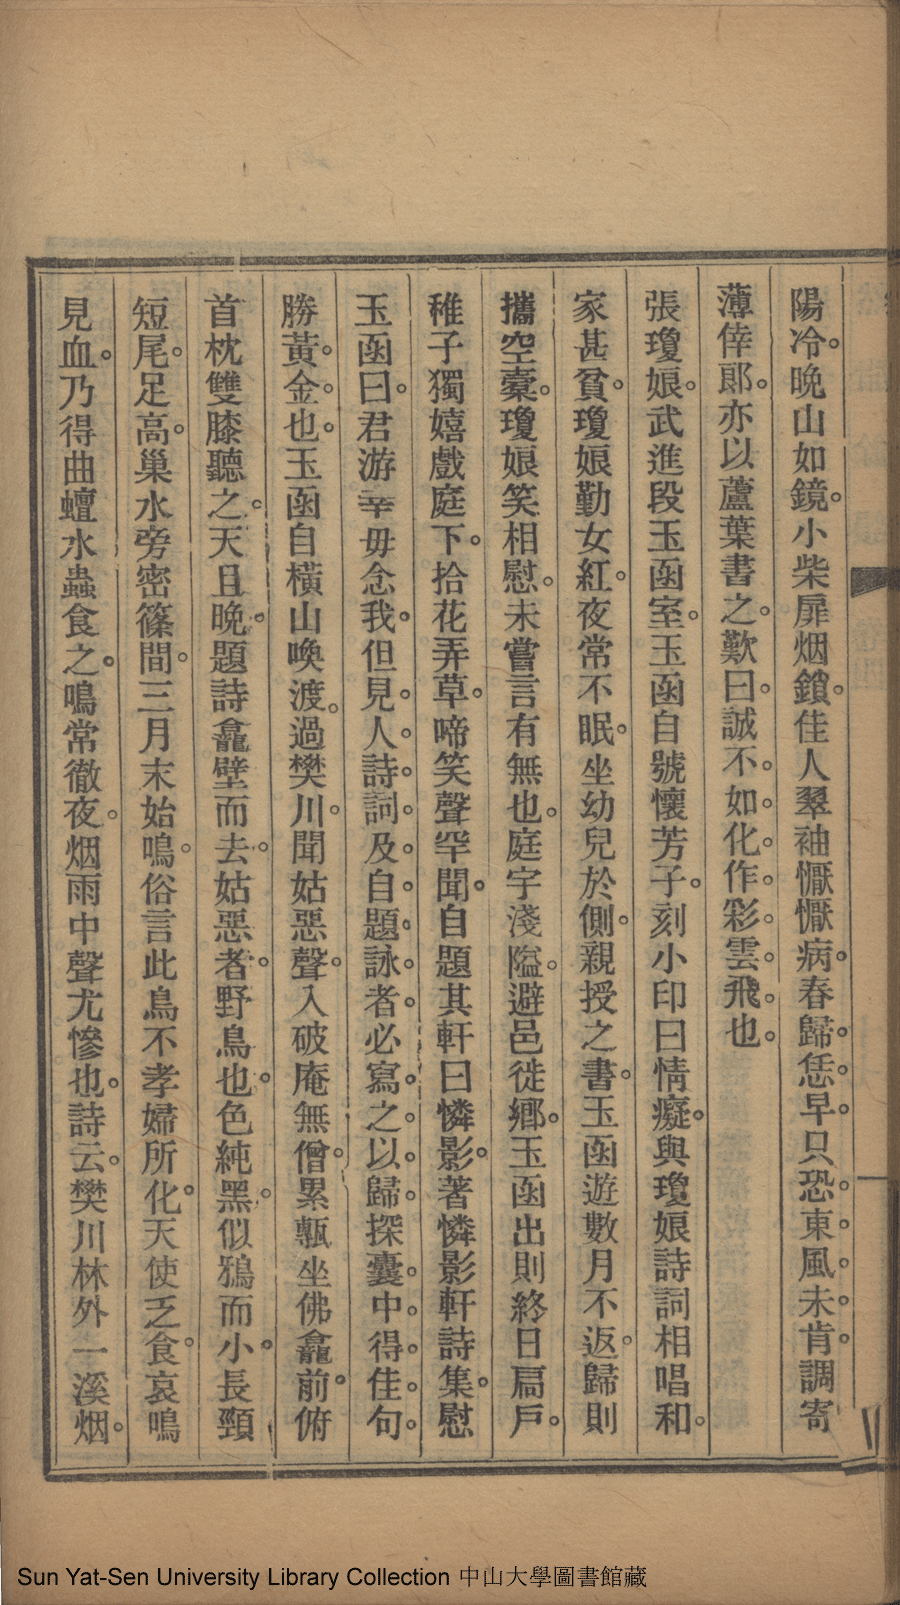 陽冷。晚山如鏡。小柴扉烟鎖。佳人翠袖懨懨病。春歸。恁早。只恐。東。風。未。肯。調寄
薄倖郎。亦以蘆葉書之。歎曰。誠不。如。化。作。彩。雲。飛。也。
張瓊娘。武進段玉函室。玉函自號懷芳子。刻小印曰情癡。與瓊娘詩詞相唱和。
家甚貧。瓊娘勤女紅。夜常不眠。坐幼兒於側。親授之書。玉函遊數月不返。歸則
攜空橐。瓊娘笑相慰。未嘗言有無也。庭宇淺隘。避邑徙鄉。玉函出則終日扃戶。
稚子獨嬉戲庭下。拾花弄草。啼笑聲罕聞。自題其軒曰憐影。著憐影軒詩集。慰
玉函曰。君游幸毋念我。但見。人。詩。詞。及。自。題。詠。者。必寫。之。以。歸。探囊。中。得。佳。句。
勝黃。金。也。玉函自橫山喚渡。過樊川。聞姑惡聲。入破庵無僧。累甎坐佛龕前。俯
首枕雙膝聽之。天且晚。題詩龕壁而去。姑惡者。野鳥也。色純黑。似鴉而小。長頸
短尾。足高。巢水旁密篠間。三月末始鳴。俗言此鳥不孝婦所化。天使乏食。哀鳴
見血。乃得曲蟺水蟲食之。鳴常徹夜。烟雨中聲尤慘也。詩云。樊川林外一溪烟。
Sun Yat-Sen University Library Collection 中山大學圖書館藏